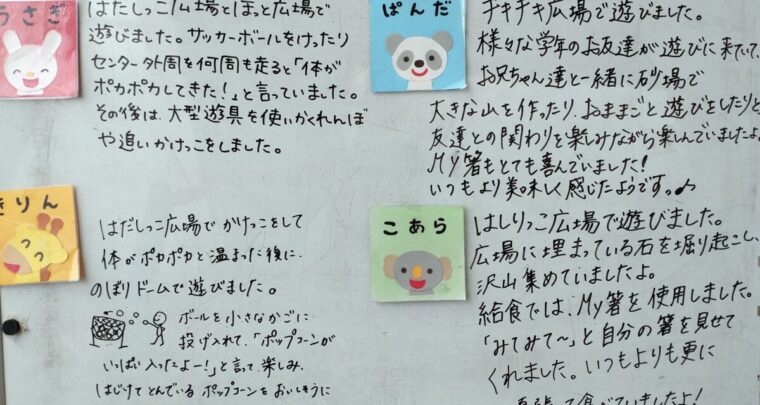 うさぎ
はだしっこ広場とほっと広場で
遊びました。サッカーボールをけったり
センター外周を何周も走ると「体が
ポカポカしてきた!」と言っていました。
その後は、大型遊具を使いかくれんぼ
や追いかけっこをしました。
ぱんだ
チキチキ広場で遊びました。
様々な学年のお友達が遊びに来ていて、
お兄ちゃん達と一緒に砂場で
大きな山を作ったり、おままごと遊びをしたりと
友達との関わりを楽しみながら楽しんでいましたよ。
My箸もとても喜んでいました!
いつもより美味しく感じたようです。♪
きりん
はだしっこ広場でかけっこをして
体がポカポカと温まった後に、
のぼりドームで遊びました。
ボールを小さなかごに
投げ入れて、「ポップコーンが
いっぱい入ったよー!」と言って楽しみ、
はじけてとんでいるポップコーンをおいしそうに
こあら
はしりっこ広場で遊びました。
広場に埋まっている石を堀り起こし、
沢山集めていましたよ。
給食では、My箸を使用しました。
「みてみて~」と自分の箸を見せて
くれました。いつもよりも更に
頑張って食べていましたよ!